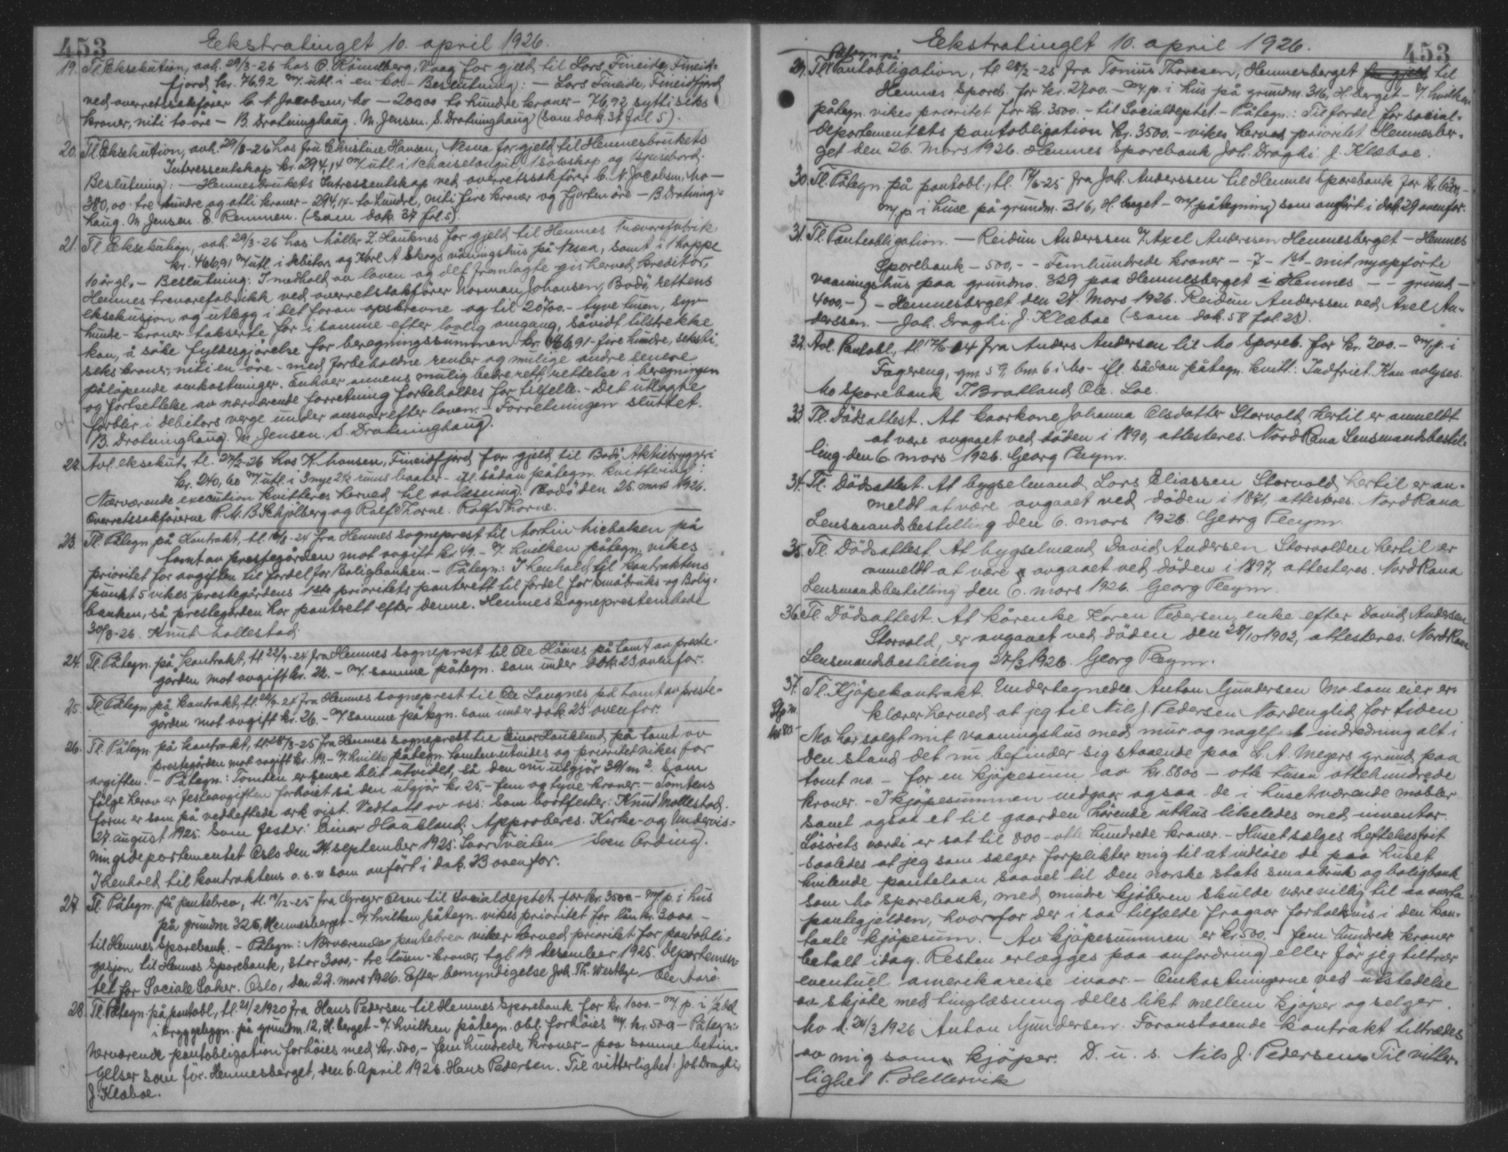 453
Ekstratinget 10. april 1926.
19. Tl. Eksekution, avh. 29/3-26 hos O. Strandberg, Vaag for gjeld til Lars Fineide, Fineid-
fjord kr. 76,92 m/ utl. i en ko. - Beslutning: - Lars Fineide, Fineidfjord
ved overretssakfører C. N. Jacobsen, Mo - 200,00 to hundre kroner - 76,92 sytti seks
kroner, nitito øre - B. Drotninghaug. M. Jensen. S. Drotninghaug (som dok 37 fol 5).
20. Tl. Eksekution, avh. 29/3-26 hos fru Christine Hansen, Nesna for gjeld til Hemnesbrukets
Interessentskap kr. 294,14 m/ utl. i 1 chaiselongue 1 sølvskap og 1 spisebord.
Beslutning: - Hemnesbrukets Intressentskap ved overretssakfører C. N. Jacobsen Mo -
380,00 tre hundre og otti kroner - 294,14 to hundre, nitifire kroner og fjorten øre - B. Drotning-
haug. M. Jensen E Remmen. (som dok. 37 fol 5).
21. Tl. Eksekution, avh. 29/3-26 hos Møller Z. Hauknes for gjeld til Hemnes Trævarefabrik
kr. 466,91 m/ utl. i debitors og Karl A Skogs våningshus på Nesna, samt i 1 hoppe
10 år gl. - Beslutning: I medhold av loven og det fremlagte gis herved kreditor,
Hemnes trevarefabrikk ved overretssakfører Norman Johansen, Bodø, rettens
eksekusjon og utlegg i det foran opskrevne og til 20700.- tyve tusen, syv
hundre - kroner takserte for i samme efter lovlig omgang, såvidt tilstrekke
kan, å søke fyldesgjørelse for beregningssummen kr. 466,91 - fire hundre, seksti
seks kroner, niti en øre - med forbeholdne renter og mulige andre senere
påløpende omkostninger. Enhver annens mulig bedre rett, rettelse i beregningen
og fortsettelse av nærværende forretning forbeholdes for tilfelle. - Det utlagte
forblir i debitors verge under ansvar efter loven. - Forretningen sluttet.
B. Drotninghaug. M. Jensen. S. Drotninghaug.
22. Avl. eksekut., tl. 27/2-26 hos K. Hansen, Fineidfjord for gjeld til Bodø Aktiebryggeri
kr. 240,60 m/ utl. i 3 nye 2½ rums baater - ifl. sådan påtegn. kvittering:
Nærværende execution kvitteres herved til avlæsning. Bodø den 25. mars 1926.
Overretssakførerne P. M. B. Schjølberg og Rolf Thorne. Rolf Thorne.
23. Tl. Påtegn på Kontrakt, tl. /8-24 fra Hemnes sogneprest til Martin Michalsen på
tomt av prestegården mot avgift kr. 49.- i hvilken påtegn. vikes
prioritet for avgiften til fordel for Boligbanken. - Påtegn.: I henhold til kontraktens
punkt 5 vikes prestegårdens 1ste prioritets panterett til fordel for Småbruks- og Bolig-
banken, så prestegården har panterett efter denne. Hemnes Sogneprestembede
30/3-26. Knut Mollestad
24. Tl. Påtegn. på Kontrakt, tl 22/9-24 fra Hemnes sogneprest til Ole Hånes på tomt av preste-
gården mot avgift kr. 22.- m/ samme påtegn. som under dok 23 ovenfor.
25. Tl. Påtegn. på kontrakt, tl 22/9-24 fra Hemnes sogneprest til Ole Langnes på tomt av preste-
gården mot avgift kr. 26.- m/ samme påtegn. som under dok 23 ovenfor.
26. Tl. Påtegn. på kontrakt, tl 28/3-25 fra Hemnes sogneprest til Einar Haukland, på tomt av
prestegården mot avgift kr. 19.- i hvilke påtegn. tomten utvides og prioritet vikes for
avgiften. - Påtegn.: Tomten er senere blit utvidet, så den nu utgjør 391 m². Som
følge herav er festeavgiften forhøiet så den utgjør kr. 25.- fem og tyve kroner. - Tomtens
form er som på vedheftede ark vist. Vedtatt av oss: Som bortfester: Knut Mollestad.
27. august 1925. Som fester: Einar Haukland. Approberes. Kirke- og Undervis-
ningsdepartementet Oslo den 24. september 1925. Ivar Tveiten Sven Ording.
I henhold til kontraktens o.s.v som anført i dok. 23 ovenfor.
27. Tl. Påtegn. på pantebrev, tl. 11/12-25 fra Gregar Olsen til Socialdeptet for kr. 3500.- m/p. i hus
på grundnr. 325, Hemnesberget - i hvilken påtegn. vikes prioritet for lån kr. 3000.-
til Hemnes Sparebank. - Påtegn.: Nærværende pantebrev viker herved prioritet for pantobli-
gasjon til Hemnes Sparebank, stor 3000,- tre tusen - kroner, tgl 19 desember 1925. Departemen-
tet for Sociale Saker. Oslo, den 22. mars 1926. Efter bemyndigelse Joh. Th. Westbye Ole Aarø.
28. Tl. Påtegn. på pantobl., tl. 21/2 1920 fra Hans Pedersen til Hemnes Sparebank for kr. 1000.- m/ p. i ½ del
i bryggebygn. på grundnr. 12, H. berget - i hvilken påtegn. obl. forhøies m/ kr. 500.- Påtegn.:
Nærværende pantobligation forhøies med kr. 500,- fem hundrede kroner - paa samme betin-
gelser som før. Hemnesberget, den 6. April 1926. Hans Pedersen. Til vitterlighet: Joh Draghi,
J. Klæboe.
453
Ekstratinget 10. april 1926.
29. Tl. Påtegn. på Pantobligation, tl 20/2-25 fra Tomine Thoresen, Hemnesberget til
Hemnes Spareb. for kr. 2700.- m/p. i hus på grundnr. 316, H. berget - i hvilken
påtegn. vikes prioritet for kr. 3500.- til Socialdeptet. - Påtegn.: Til fordel for social-
departementets pantobligation kr. 3500.- vikes herved prioritet. Hemnesber-
get den 26. Mars 1926. Hemnes Sparebank Joh. Draghi J. Klæboe.
30. Tl. Påtegn. på pantobl., tl. 17/6-25 fra Joh. Anderssen til Hemnes Sparebank for kr.
m/p i huse på grundnr. 316, H. berget - m/ påtegning som anført i dok. 29 ovenfor.
31. Tl. Panteobligation. - Reidun Anderssen v/ Axel Anderssen Hemnesberget - Hemnes
Sparebank - 500,- - Femhundrede kroner - - 7 - 1st - mit nyopførte
vaaningshus paa grundno. 329 paa Hemnesberget i Hemnes - - grund -
4000,-) - Hemnesberget den 27 Mars 1926. Reidun Anderssen ved Axel An-
derssen. Joh. Draghi J Klæboe (som dok 58 fol 23).
32. Avl. Pantobl., tl. 17/6-14 fra Anders Andersen til Mo Spareb. for kr. 200.- m/p. i
Fagereng, gnr 59, bnr 6 i Mo - ifl. sådan påtegn. kvitt.: Indfriet. Kan avlyses.
Mo Sparebank J. Bratland Ole. Loe.
33. Tl. Dødsattest. At kaarkone Johanna Olsdatter Storvold, hertil er anmeldt
at være avgaaet ved døden i 1890, attesteres. Nord Rana Lensmandsbestil-
ling den 6. mars 1926. Georg Meyer.
34. Tl. Dødsattest. At bygselmand Lars Eliassen Storvold hertil er an-
meldt at være avgaaet ved døden i 1871, attesteres. Nord Rana
Lensmandsbestilling den 6. mars 1926. Georg Meyer.
35. Tl. Dødsattest. At bygselmand David Andersen Storvolden hertil er
anmeldt at være avgaaet ved døden i 1897, attesteres. Nord Rana
Lensmandsbestilling den 6. mars 1926. Georg Meyer.
36. Tl. Dødsattest. At kårenke Karen Pedersen, enke efter David Andersen
Storvold, er avgaaet ved døden den 28/10 1902, attesteres. Nord Rana
Lensmandsbestilling 27/3 1926. Georg Meyer.
37. Tl. Kjøpekontrakt. Undertegnede Anton Gundersen Mo som eier er-
klærer herved at jeg til Nils J. Pedersen Nordenglid, for tiden
Mo har solgt mit vaaningshus med mur og naglfast indredning alt i
den stand det nu befinder sig staaende paa L. A. Meyers grund paa
tomt no. - for en kjøpesum av kr. 8800 - otte tusen ottehundrede
kroner. - I kjøpesummen medgaar ogsaa de i huset værende møbler
samt ogsaa et til gaarden hørende uthus likeledes med inventar.
Løsørets værdi er sat til 800 - otte hundrede kroner. - Huset sælges heftelsesfrit
saaledes at jeg som sælger forplikter mig til at indløse de paa huset
hvilende pantelaan saavel til Den norske stats smaabruk og boligbank
som Mo Sparebank, med mindre kjøberen skulde være villig til aa overta
pantegjelden, hvorfor der i saa tilfælde fragaar forholdsvis i den kon-
tante kjøpesum. - Av kjøpesummen er kr. 500.- fem hundrede kroner
betalt idag. Resten erlægges paa anfordring eller før jeg tiltrær
eventuel amerikareise ivaar. - Omkostningerne ved utstedelse
av skjøte med tinglæsning deles likt mellem kjøper og sælger.
Mo d. 24/3 1926 Anton Gundersen. Foranstaaende kontrakt tiltrædes
av mig som kjøper. D. u. s. Nils J. Pedersen Til vitter-
lighet P. Hellervik